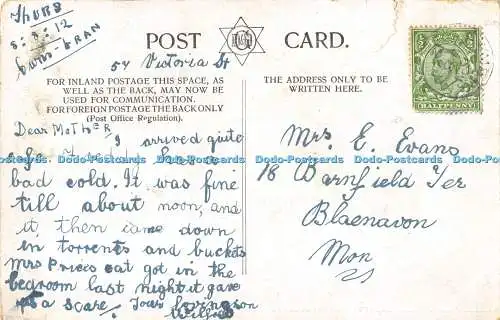 Thurs
8:8:12
Cwm-Bran
POST CARD.
57 Victoria St
FOR INLAND POSTAGE THIS SPACE, AS
WELL AS THE BACK, MAY NOW BE
USED FOR COMMUNICATION.
FOR FOREIGN POSTAGE THE BACK ONLY
(Post Office Regulation).
THE ADDRESS ONLY TO BE
WRITTEN HERE.
HALFPENNY
Dear Mother
I arrived quite
safe. I
bad cold. It was fine
till about noon, and
it, then came down
in torrents and buckets
Mrs Prices cat got in the
bedroom last night it gave
a scare. Your loving son
Wilfred
Mrs. E. Evans
18 Barnfield Ter
Blaenavon
Mon
Dodo-Postcards Dodo-Postcards Dodo-Postcards Dodo-Postcards Dodo-Postcards